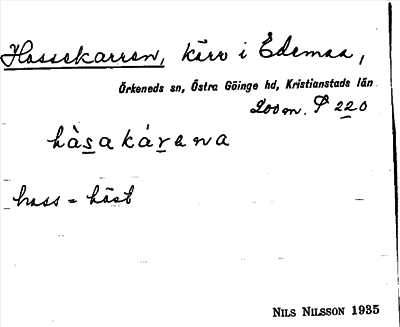 Hossekarren, kärr i Edemaa,
Örkeneds sn, Östra Göinge hd, Kristianstads län
200 m. P 220
hàsakárena
hoss = häst
NILS NILSSON 1935